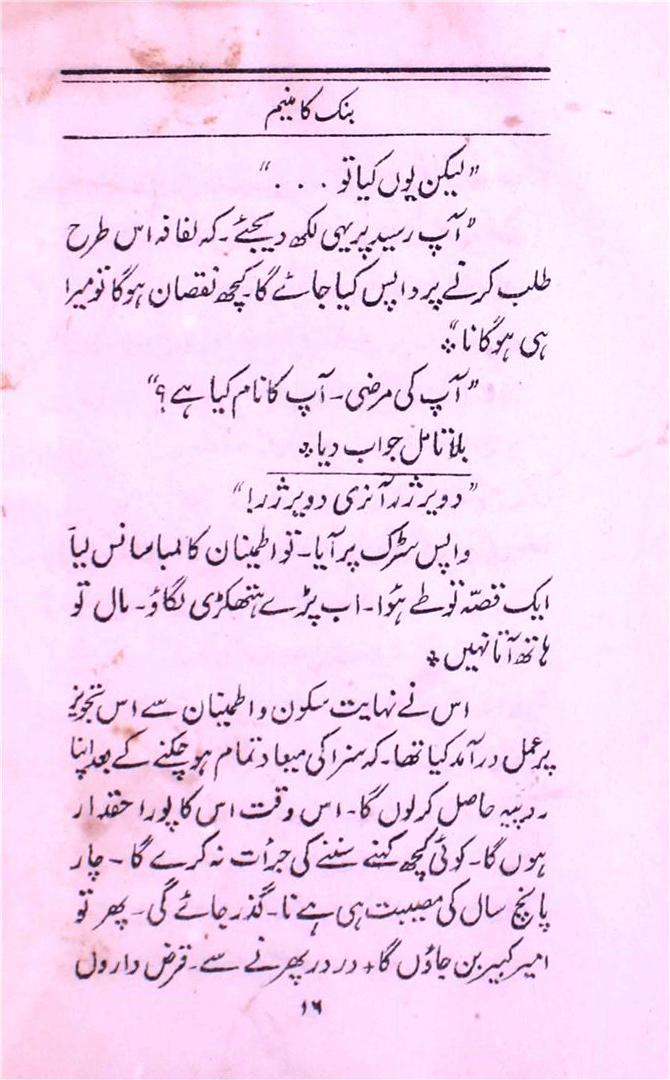 بنک کا منیم
"لیکن یوں کیا تو . . . "
"آپ رسید پر یہی لکھ دیجئے۔ کہ لفافہ اس طرح
طلب کرنے پر واپس کیا جائے گا۔ کچھ نقصان ہوگا تو میرا
ہی ہوگا نا"٭
"آپ کی مرضی۔ آپ کا نام کیا ہے؟"
بلا تامل جواب دیا٭
"دویرژر آنری دویرژر!"
واپس سڑک پر آیا۔ تو اطمینان کا لمبا سانس لیا
ایک قصّہ تو طے ہؤا۔ اب پڑے ہتھکڑی لگاؤ۔ مال تو
ہاتھ آتا نہیں٭
اس نے نہایت سکون و اطمینان سے اس تجویز
پر عمل درآمد کیا تھا۔ کہ سزا کی میعاد تمام ہو چکنے کے بعد اپنا
روپیہ حاصل کر لوں گا۔ اس وقت اس کا پورا حقدار
ہوں گا۔ کوئی کچھ کہنے سننے کی جرأت نہ کرے گا۔ چار
پانچ سال کی مصیبت ہی ہے نا۔ گذر جائے گی۔ پھر تو
امیر کبیر بن جاؤں گا٭ در در پھرنے سے۔ قرض داروں
۱۶